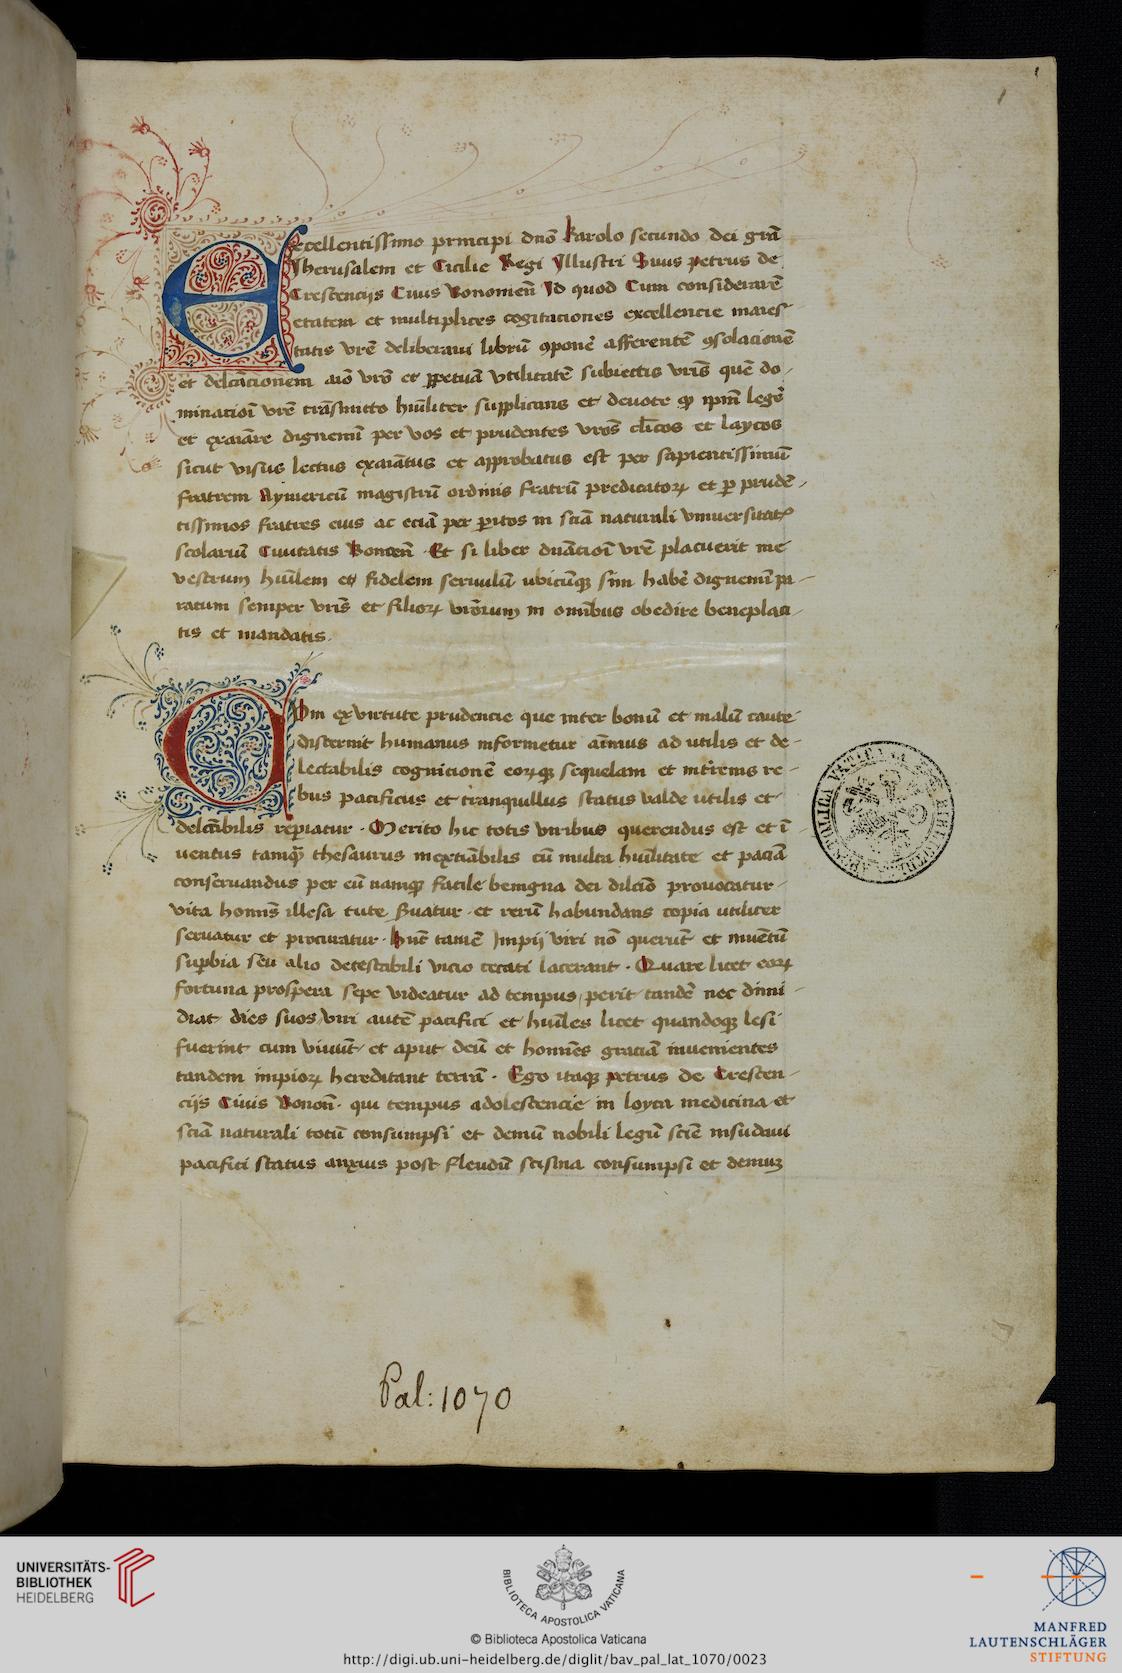 1
Excellentissimo principi dnō karolo secundo dei grā
Jherusalem et Cicilie Regi Jllustri Suus petrus de
Crescencijs Ciuis Bonomen̄ Jd quod Cum considerarē
etatem et multiplices cogitaciones excellencie maies
tatis vrē deliberaui librū ꝯponē afferentē ꝯsolacionē
et delc̄acionem aīo vrō et ꝑpetuā vtilitatē subiectis vrīs quē do-
minacioī vrē trāsmitto hūiliter supplicans et deuote ꝙ ip̄m legē
et exaīare dignemī per vos et prudentes vrōs cl̄icos et laycos
sicut visus lectus exaīatus et approbatus est per sapientissimū
fratrem Aymericū magistrū ordinis fratrū predicatoꝝ et ꝑ prudē-
tissimos fratres eius ac eciā per ꝑitos in sciā naturali vniuersitatꝭ
scolarium Ciuitatis Et si liber vrē placuerit me
vestrum hūilem et fidelem seruulū ubicūqꝫ sim habē dignemī pa-
ratum semper vrīs et filioꝝ vrōrum in om̄ibus obedire beneplaci-
tis et mandatis.
Cum ex virtute prudencie que inter bonū et malū caute
discernit humanus informetur aīmus ad utilis et de-
lectabilis cognicionē eoꝝqꝫ sequelam et re-
bus pacificus et tranquillus status valde utilis et
delc̄abilis repiatur · Merito hic totis viribus querendus est et ī
uentus tamqꝫ thesaurus cū multa hūilitate et paciā
conseruandus per eū namqꝫ facile benigna dei dilcīo prouocatur
vita homīs illesa tute ẜuatur · et rerū habundans copia utiliter
seruatur et procuratur · Hūc tamē Jmpij viri nō querūt et inuētū
supbia seu alio detestabili vicio cecati lacerant · Quare licet eoꝝ
fortuna prospera sepe videatur ad tempus perit tandē nec dimi-
diat dies suos viri autē pacifici et hūiles licet quandoqꝫ lesi
fuerint cum viuūt et aput deū et homīes graciā inuenientes
tandem impioꝝ hereditant terrā · Ego itaqꝫ petrus de Crescen-
cijs Ciuis Bonon̄ · qui tempus adolescencie in loyca medicina et
sciā naturali totū consumpsi et demū nobili legū sciē insudaui
pacifici status anxius post flendū scisma consumpsi et demuꝫ
Pal: 1070
UNIVERSITÄTS-
BIBLIOTHEK
HEIDELBERG
BIBLIOTECA APOSTOLICA VATICANA
© Biblioteca Apostolica Vaticana
http://digi.ub.uni-heidelberg.de/diglit/bav_pal_lat_1070/0023
MANFRED
LAUTENSCHLÄGER
STIFTUNG